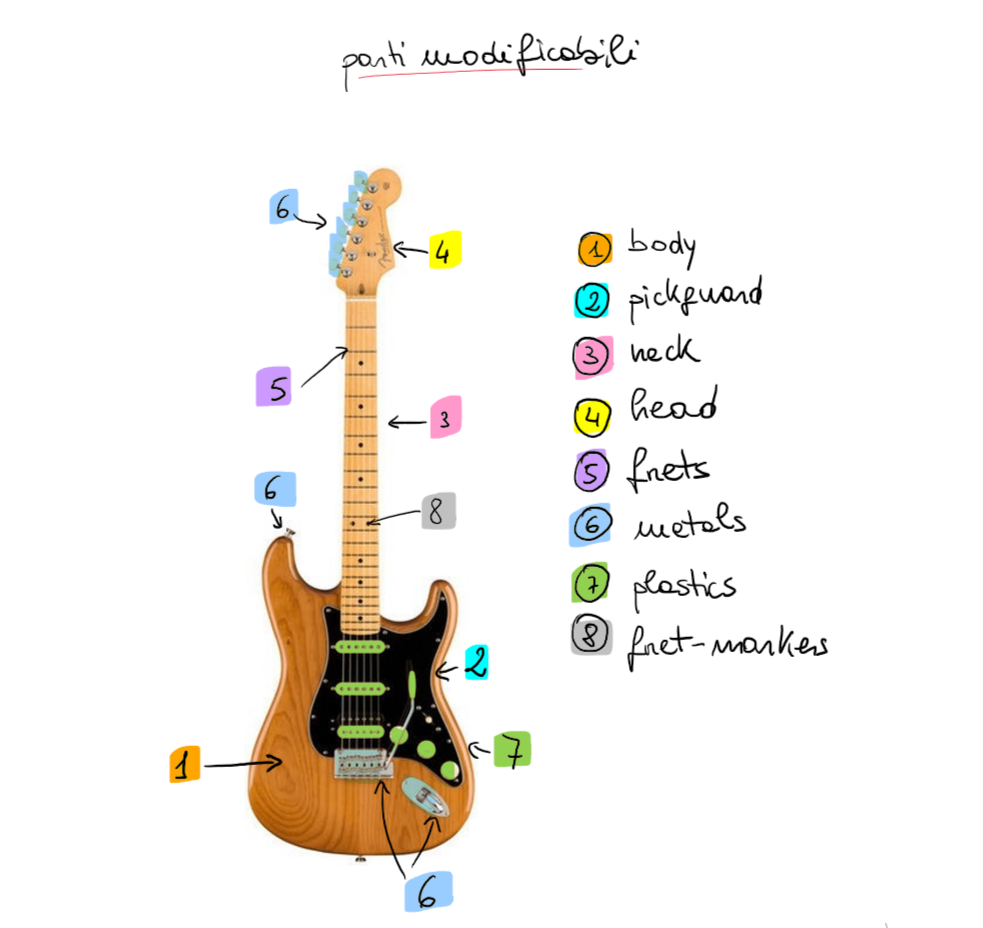 parti modificabili
6
4
5
3
6
8
2
7
1
6
Fender
1 body
2 pickguard
3 neck
4 head
5 frets
6 metals
7 plastics
8 fret-markers